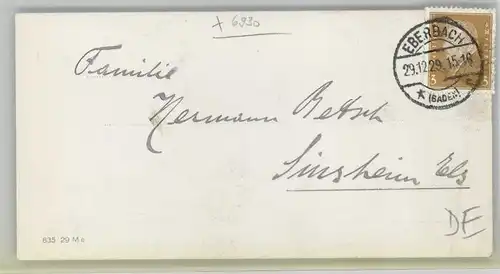 x 6930
EBERBACH
29.12.29. 15-16
* (BADEN)
5
Familie
Hermann Betsch
Sinsheim Els
DE
635 29 M e